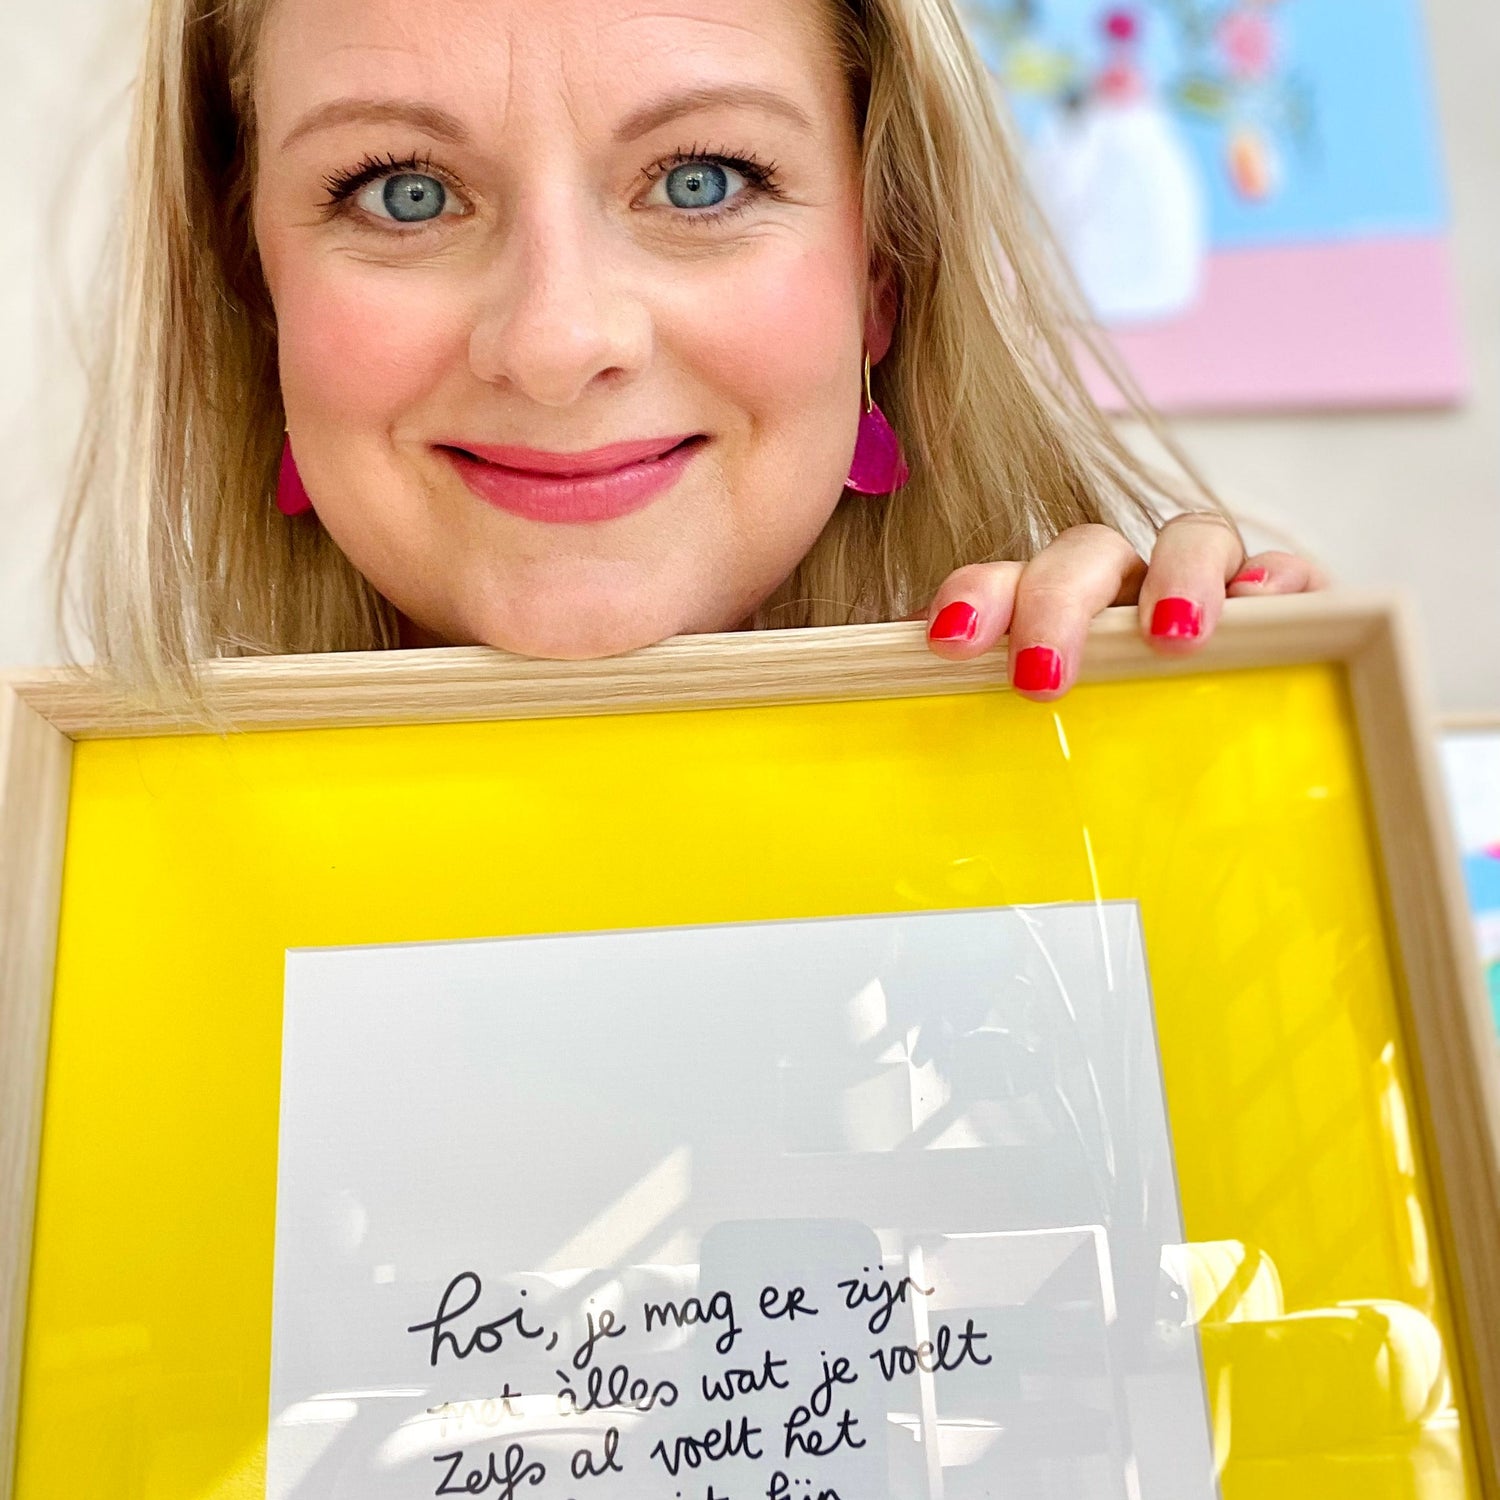 hoi, je mag er zijn
met àlles wat je voelt
Zelfs al voelt het
niet fijn